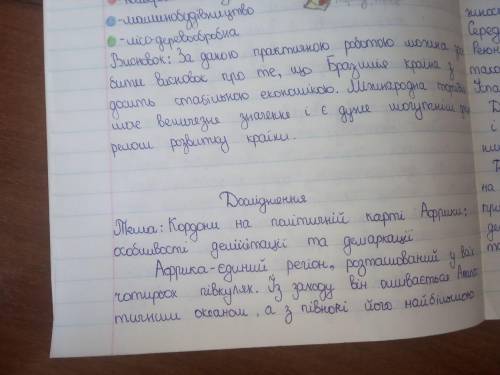 -машинобудівництво
-лісо-деревообробна
Висновок: За даною практичною роботою можна зро
бити висновок про те, що Бразилія країна з
досить стабільною економікою. Міжнародна торгівл
має величезне значення і є дуже могутнім
релом розвитку країни.
Дослідження
Тема: Кордони на політичній карті Африки:
особливости делімітації та демаркації
Африка-єдиний регіон, розташований у всіх
чотирьох півкулях. Із заходу він омивається Атла
тичним океаном, а з півночі його найбільшою
жинос
Серед
Регіон
тако
Іспа
і
при
де
та